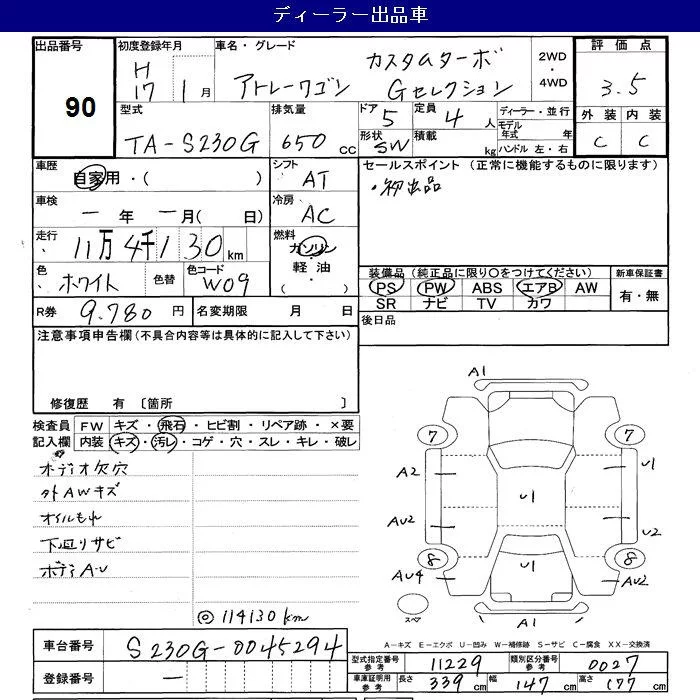 ディーラー出品車
出品番号 90
初度登録年月 H 17年 1月
車名・グレード アトレーワゴン カスタムターボ Gセレクション
2WD・4WD
評価点 3.5
外装 内装
C C
型式 TA-S230G
排気量 650cc
ドア 5
定員 4人
形状 SW
積載 kg
ディーラー・並行
モデル年式 年
ハンドル 左・右
車歴 自家用・( )
シフト AT
車検 ー年 ー月( 日)
冷房 AC
走行 11万4千130km
燃料 ガソリン・軽油・( )
色 ホワイト
色替
色コード W09
R券 9.780円
名変期限 月 日
セールスポイント(正常に機能するものに限ります)
・初出品
装備品(純正品に限り○をつけてください)
PS PW ABS エアB AW
SR ナビ TV カワ
新車保証書 有・無
後日品
注意事項申告欄(不具合内容等は具体的に記入して下さい)
修復歴 有〔箇所 〕
検査員記入欄
FW キズ・飛石・ヒビ割・リペア跡・×要
内装 キズ・汚レ・コゲ・穴・スレ・キレ・破レ
オーディオ欠穴
外AWキズ
オイルもれ
下廻りサビ
ボディA・U
◎114130km
A1
7 7
A2 U1
U1
AU2 U2
8 8
U1
AU4 AU2
スペア
A1
A-キズ E-エクボ U-凹み W-補修跡 S-サビ C-腐食 XX-交換済
車台番号 S230G-0045294
登録番号 ー
型式指定番号 参考 11229
類別区分番号 参考 0027
車庫証明用 参考 長さ 339cm 幅 147cm 高さ 177cm